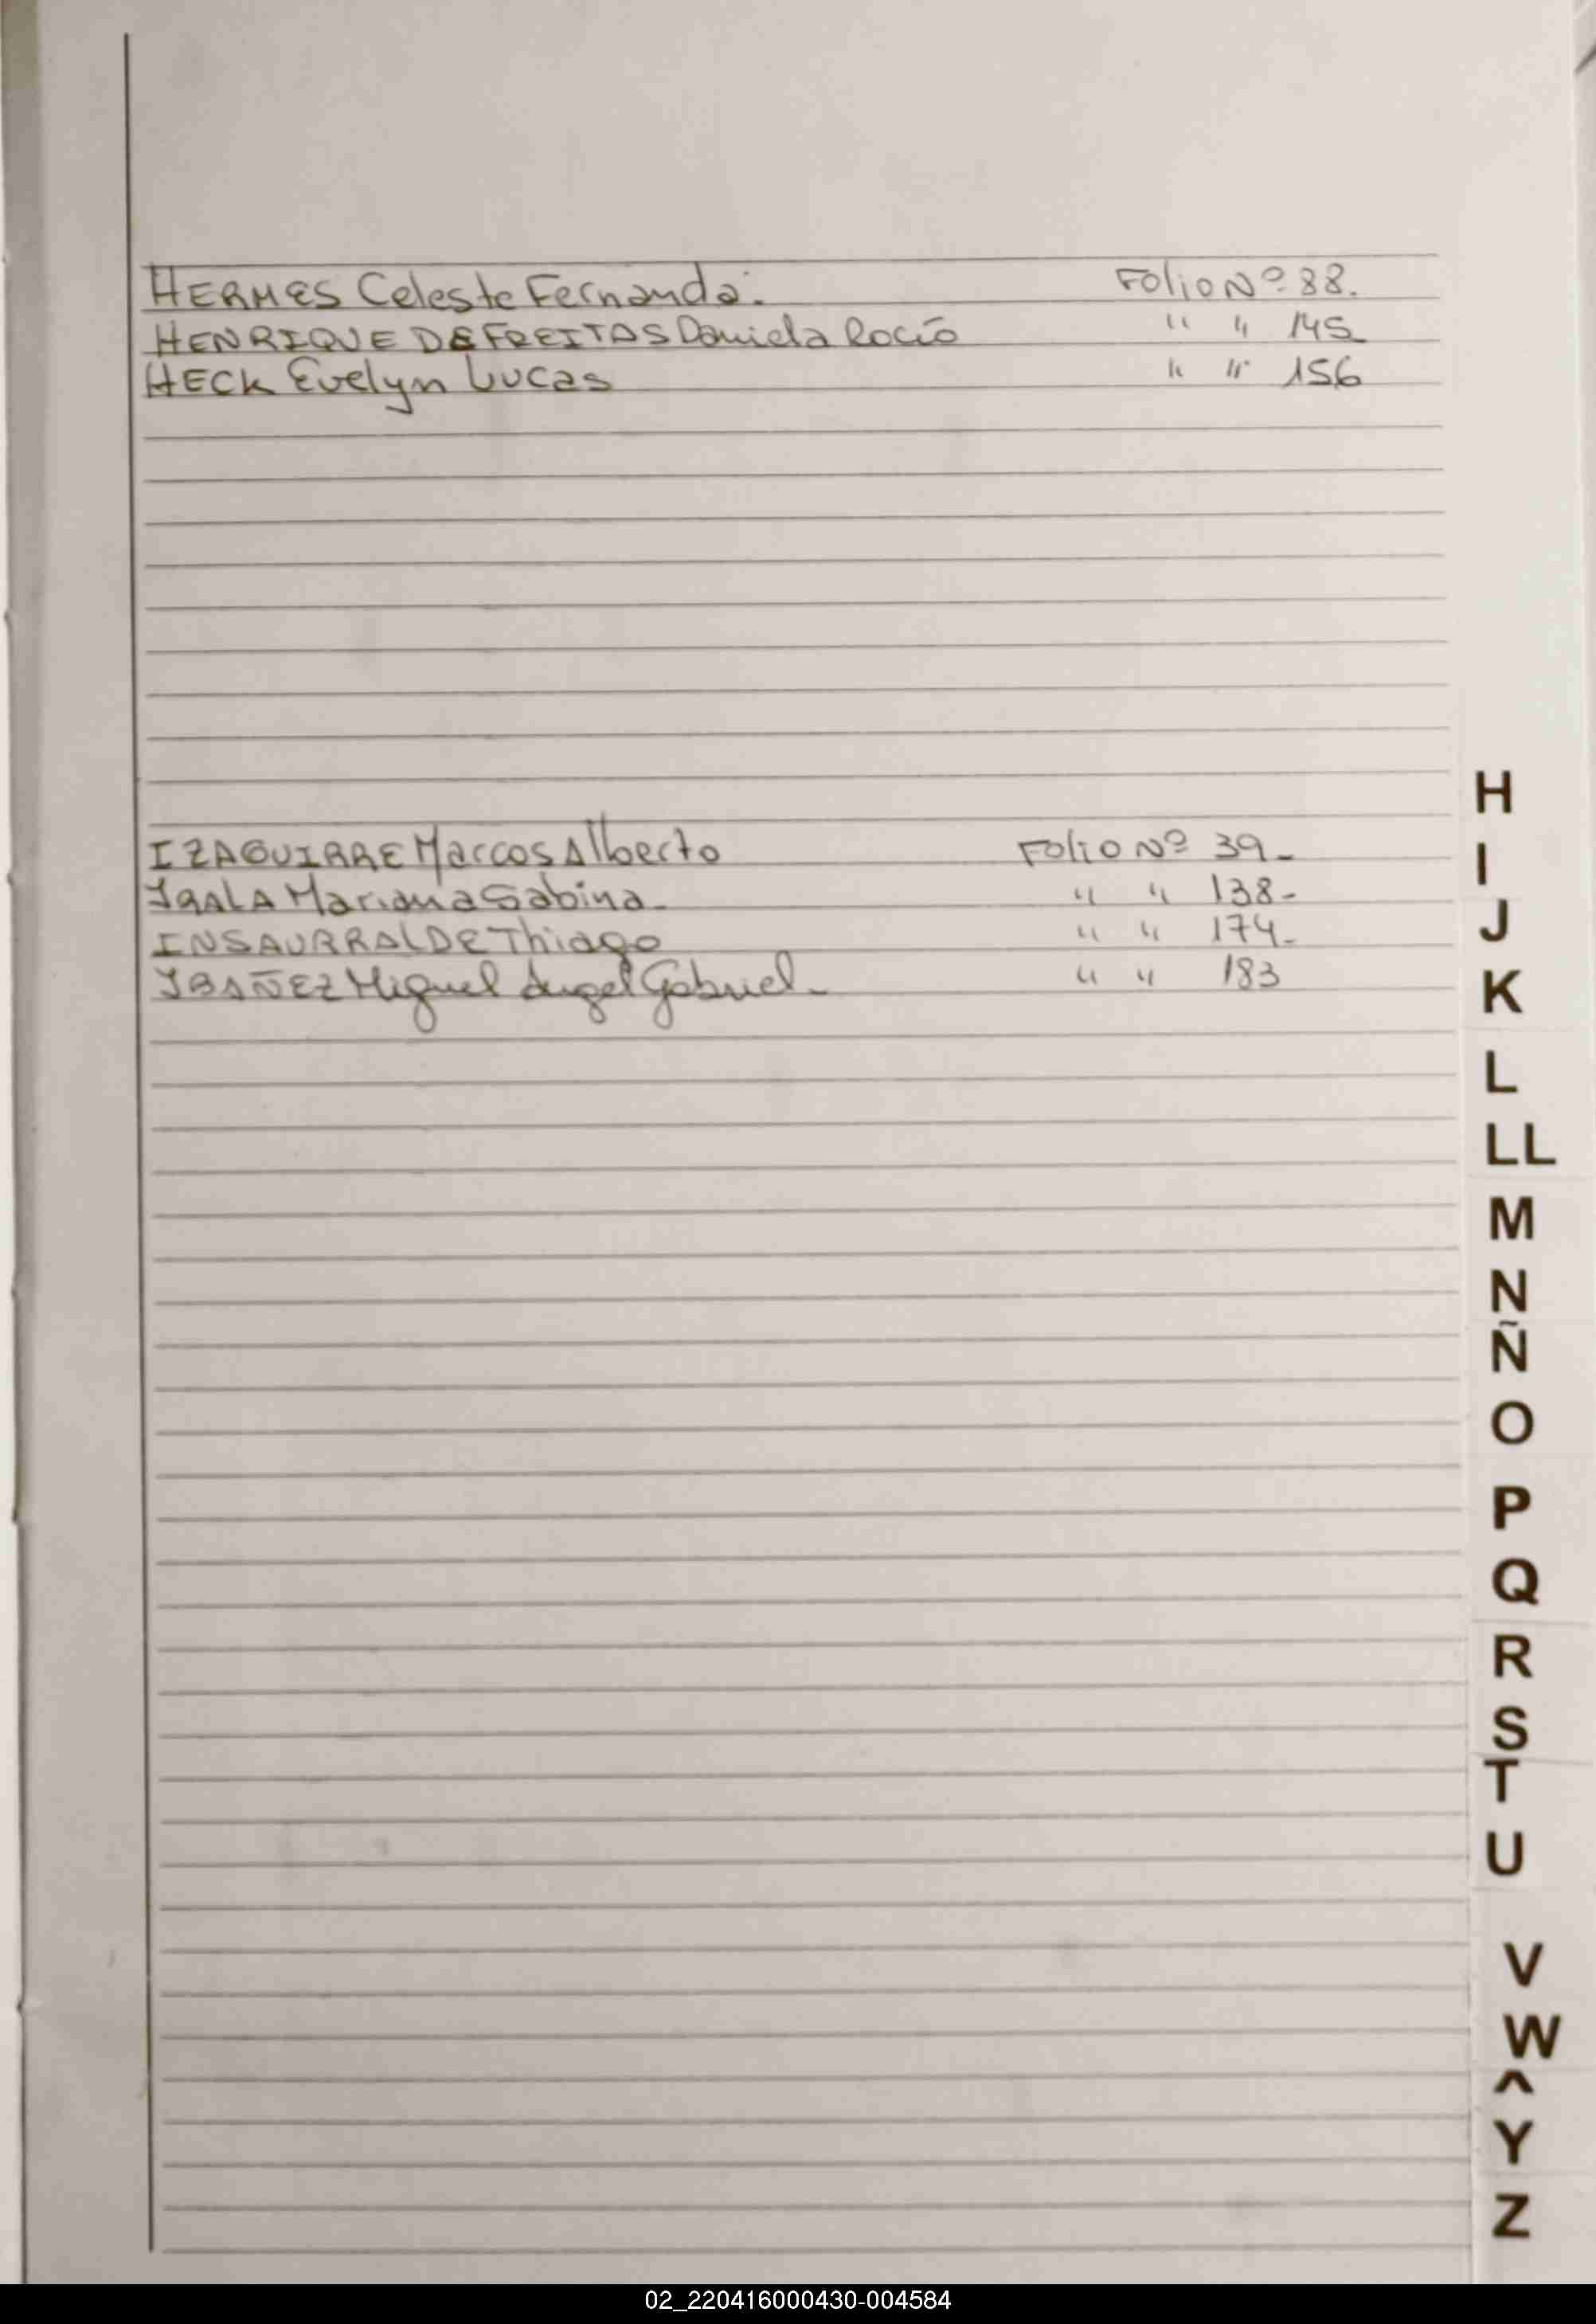 HERMES Celeste Fernanda. Folio Nº 88.
HENRIQUE DE FREITAS Daniela Rocío " " 145
HECK Evelyn Lucas " " 156
IZAGUIRRE Marcos Alberto Folio Nº 39-
IRALA Mariana Sabina- " " 138-
INSAURRALDE Thiago " " 174-
IBAÑEZ Miguel Angel Gabriel- " " 183
H
I
J
K
L
LL
M
N
Ñ
O
P
Q
R
S
T
U
V
W
Y
Z
02_220416000430-004584